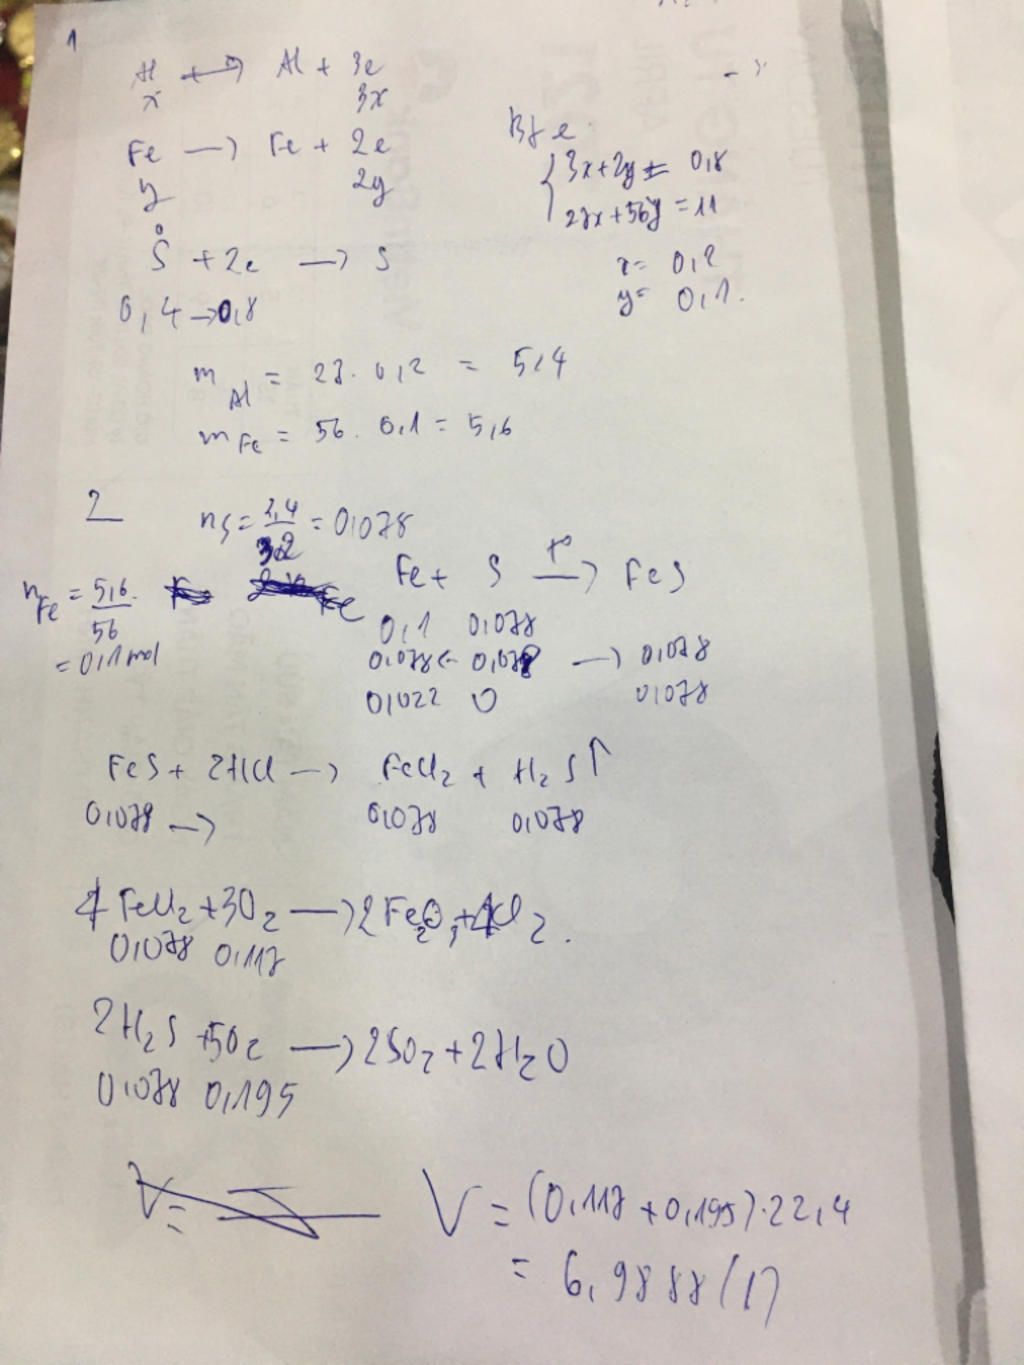 1
Al → Al + 3e
x 3x
Fe → Fe + 2e
y 2y
S⁰ + 2e → S
0,4 → 0,8
Bt e
{ 3x + 2y = 0,8
27x + 56y = 11
x = 0,2
y = 0,1.
m Al = 27. 0,2 = 5,4
m Fe = 56. 0,1 = 5,6
2
nS = 2,4/32 = 0,078
nFe = 5,6/56 = 0,1 mol
Fe + S t⁰→ FeS
0,1 0,078
0,078 ← 0,078 → 0,078
0,022 0 0,078
FeS + 2HCl → FeCl₂ + H₂S↑
0,078 → 0,078 0,078
4FeCl₂ + 3O₂ → 2Fe₂O₃ + 4Cl₂.
0,078 0,117
2H₂S + 5O₂ → 2SO₂ + 2H₂O
0,078 0,195
V =
V = (0,117 + 0,195).22,4
= 6,9888 (l)